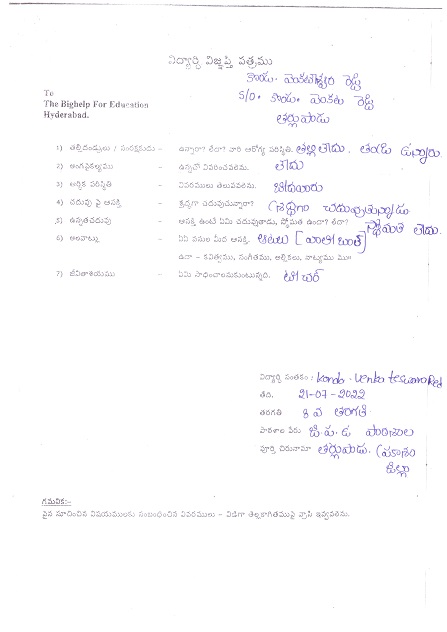 విద్యార్థి విజ్ఞప్తి పత్రము
కొండా. వెంకటేశ్వర రెడ్డి
S/o. కొండా. వెంకట రెడ్డి
తర్లుపాడు
To
The Bighelp For Education
Hyderabad.
1) తల్లిదండ్రులు / సంరక్షకుడు:- ఉన్నారా? లేదా? వారి ఆరోగ్య పరిస్థితి. తల్లి లేదు. తండ్రి ఉన్నారు
2) అంగవైకల్యము - ఉన్నచో వివరించవలెను. లేదు
3) ఆర్థిక పరిస్థితి - వివరములు తెలుపవలెను. బీదవారు
4) చదువు పై ఆసక్తి - శ్రద్ధగా చదువుచున్నారా? శ్రద్ధగా చదువుతున్నాడు
5) ఉన్నతచదువు - ఆసక్తి ఉంటే ఏమి చదువుతాడు, స్తోమత ఉందా? లేదా? స్తోమత లేదు.
6) అలవాట్లు - ఏఏ పనుల మీద ఆసక్తి. ఆటలు [వాలీ బాల్]
ఉదా - కవిత్వము, సంగీతము, అల్లికలు, నాట్యము మొ॥
7) జీవితాశయము - ఏమి సాధించాలనుకుంటున్నది. టీచర్
విద్యార్థి సంతకం : Konda - Venkateswara Red
తేది. 21-07-2022
తరగతి 8 వ తరగతి
పాఠశాల పేరు జి.ప.ఉ పాఠశాల
పూర్తి చిరునామా తర్లుపాడు. ప్రకాశం
జిల్లా
గమనిక:-
పైన సూచించిన విషయములకు సంబంధించిన వివరములు - విడిగా తెల్లకాగితముపై వ్రాసి ఇవ్వవలెను.